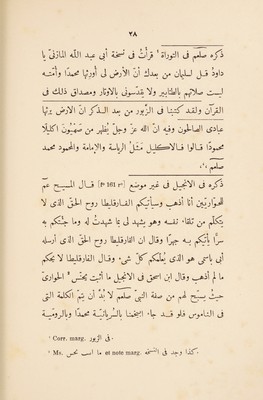 ٢٨
ذكره صلعم فى التوراة ¹ قرأتُ فى نسخة أبى عبد الله المازنىّ يا
داودُ قل لسليمان من بعدك أنّ الأرض لى أُورثها محمّدًا وأمّته
ليست صلاتهم بالطنابير ولا يقدّسونى بالأوتار ومصداق ذلك فى
القرآن ولقد كتبنا فى الزبور من بعد الذكر انّ الأرض يرثها
عبادى الصالحون وفيه انّ الله عزّ وجلّ يُظهر من صهْيُونَ اكليلًا
محمودًا قالوا فالاكليل مَثَلُ الرياسة والإمامة والمحمود محمد
صلعم ،'،
ذكره فى الانجيل فى غير موضع [fº 161 rº] قال المسيح عم
للحواريّين أنا أذهب وسيأتيكم الفارقليطا روح الحقّ الذى لا
يتكلّم من تلقاء نفسه وهو يشهد لى بما شهدتُ له وما جئتكم به
سرًّا يأتيكم به جهرًا وقال ان الفارقليطا روح الحقّ الذى أرسله
أبى باسمى هو الذى يُعلّمكم كلّ شىء وقال الفارقليطا لا يجيئكم
ما لم أذهب وقال ابن اسحق فى الانجيل ما أثبت يُحَنَّس ² الحوارىّ
حيث نسخ لهم من صفة النبىّ صلعم لا بُدّ أن يتمّ الكلمة التى
فى الناموس فلو قد جاء المنحمنّا محمدًا بالسُّريانيّة وبالروميّة
¹ Corr. marg. فى الزبور.
² Ms. ما اىىت نحىس et note marg. كذا وجد فى النسخة.